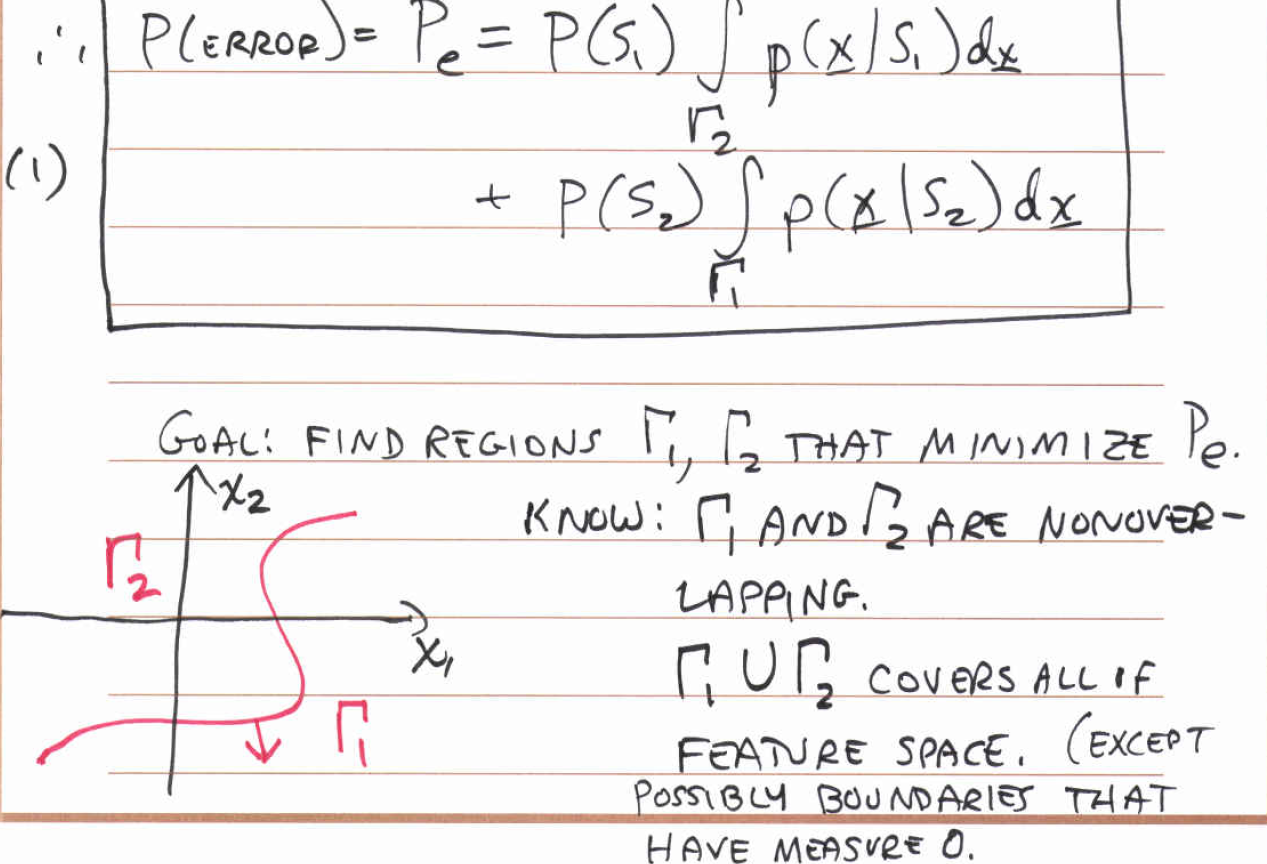 ∴ P(ERROR) = Pₑ = P(S₁) ∫_Γ₂ p(x̲|S₁)dx̲
(1) + P(S₂) ∫_Γ₁ p(x̲|S₂)dx̲
GOAL: FIND REGIONS Γ₁, Γ₂ THAT MINIMIZE Pₑ.
x₂
KNOW: Γ₁ AND Γ₂ ARE NONOVER-
Γ₂
LAPPING.
x₁
Γ₁ ∪ Γ₂ COVERS ALL IF
Γ₁
FEATURE SPACE. (EXCEPT
POSSIBLY BOUNDARIES THAT
HAVE MEASURE 0.